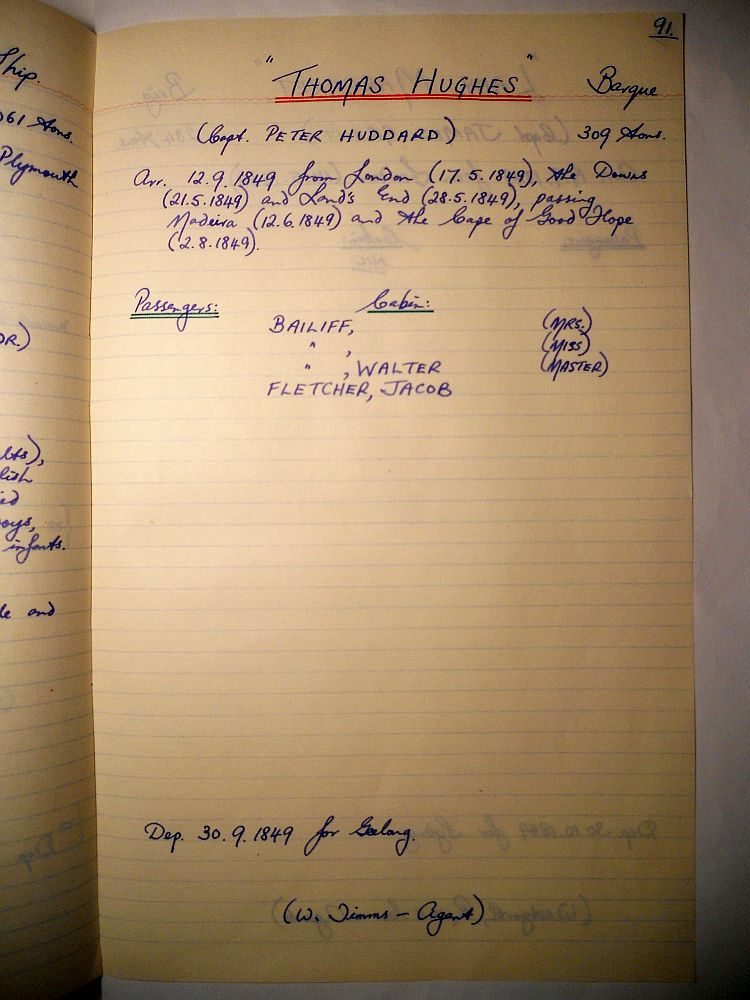 91.
"THOMAS HUGHES" Barque
(Capt. PETER HUDDARD) 309 tons.
Arr. 12.9.1849 from London (17.5.1849), the Downs
(21.5.1849) and Land's End (28.5.1849), passing
Madeira (12.6.1849) and the Cape of Good Hope
(2.8.1849).
Passengers: Cabin:
BAILIFF, (MRS.)
" , (MISS)
" , WALTER (MASTER)
FLETCHER, JACOB
Dep. 30.9.1849 for Geelong.
(W. Timms - Agent)
Ship.
061 tons.
Plymouth
DR.)
lts),
lish
ed
oys,
infants.
le and